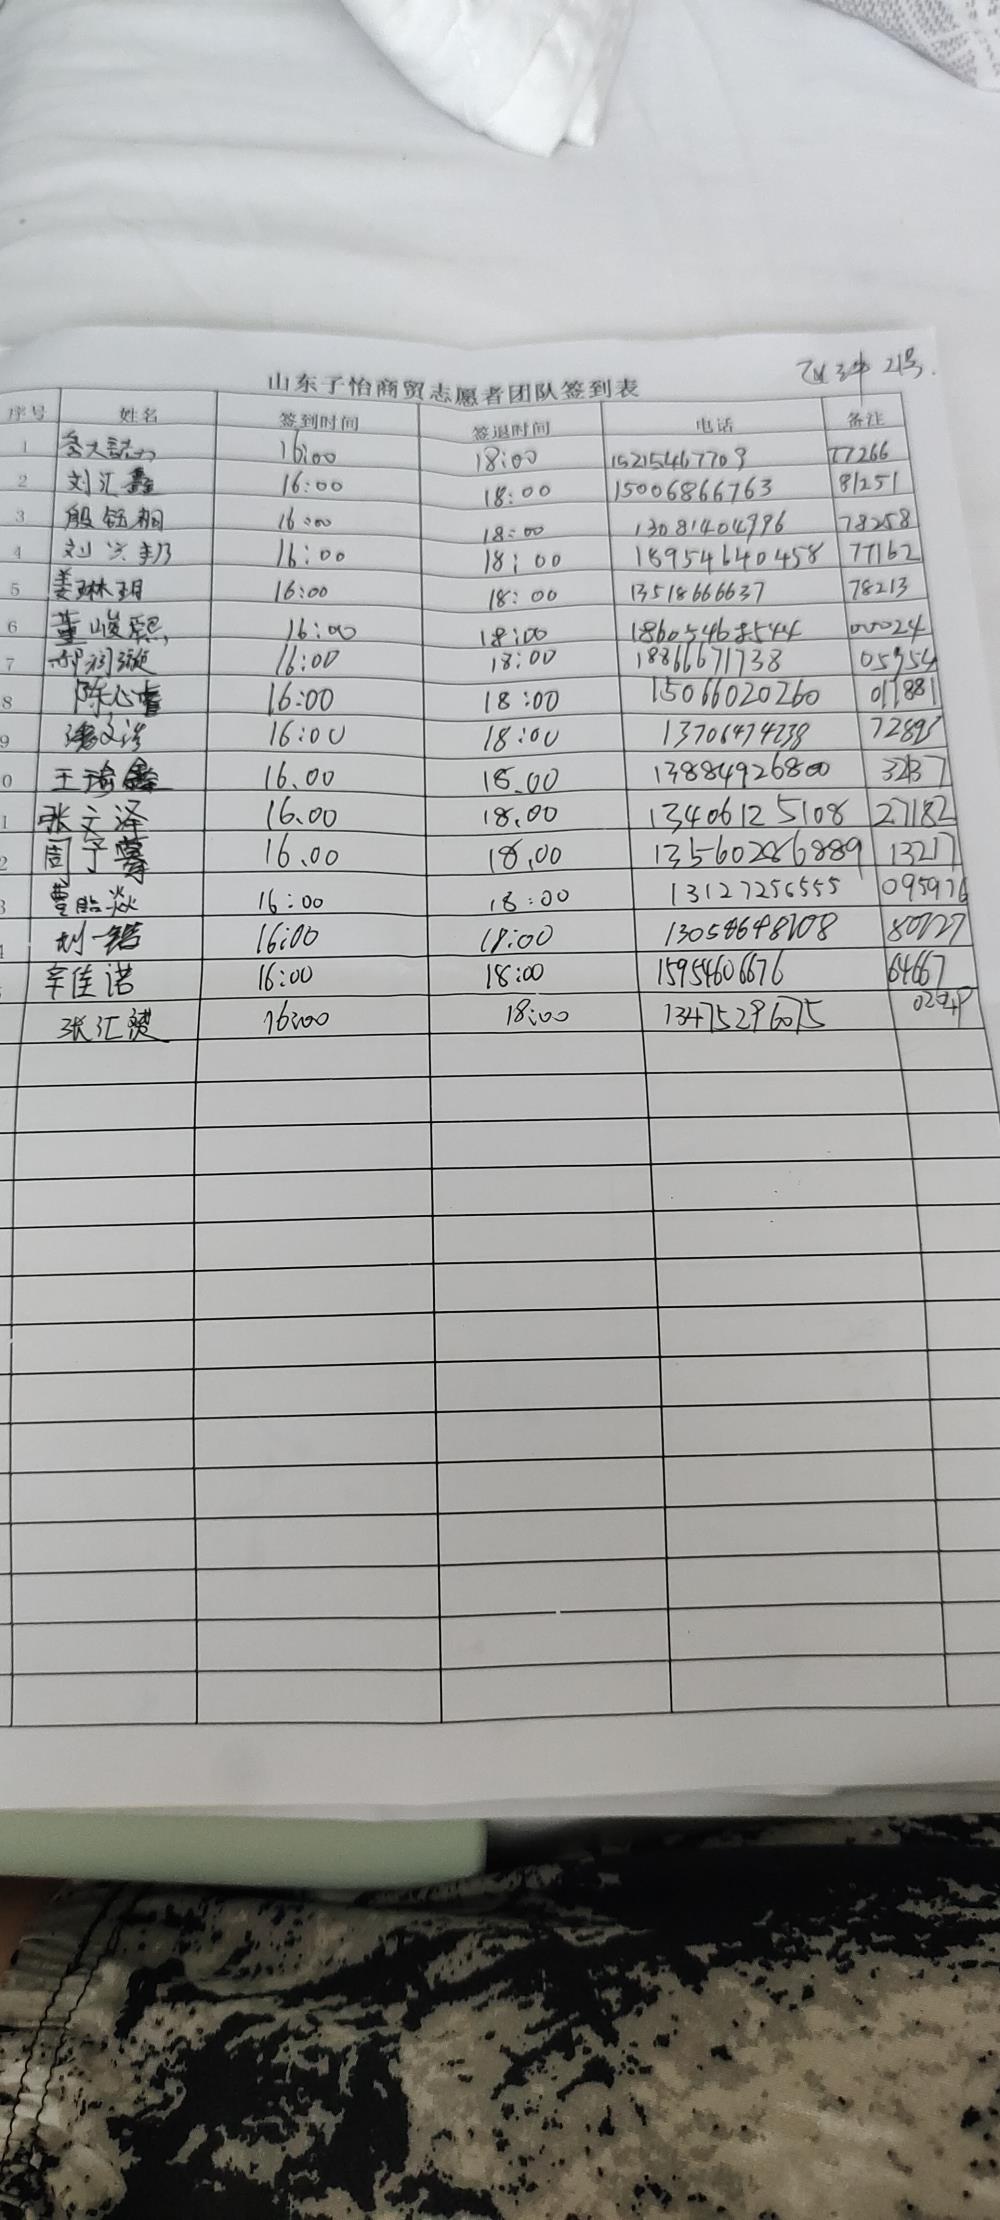 山东子怡商贸志愿者团队签到表
21号.
序号 姓名 签到时间 签退时间 电话 备注
1 16:00 18:00 15215467709 77266
2 刘汇鑫 16:00 18:00 15006866763 81251
3 殷钰桐 16:00 18:00 13081404996 78258
4 刘兴邦 16:00 18:00 18954640458 77162
5 姜琳玥 16:00 18:00 13518666637 78213
6 董峻熙 16:00 18:00 00024
7 郝润璇 16:00 18:00 18866671738 05954
8 陈心睿 16:00 18:00 15066020260 017881
9 潘文浩 16:00 18:00 13706474239
0 王瑜鑫 16.00 18.00 13884926800
1 张文泽 16.00 18.00 13406125108 27182
2 周予蓦 16.00 18.00 135602866889 13217
3 曹贻焱 16:00 18:00 13127256555 095976
刘一锴 16:00 18:00
辛佳诺 16:00 18:00 15954606676 64667
张汇 16:00 18:00 13475296075